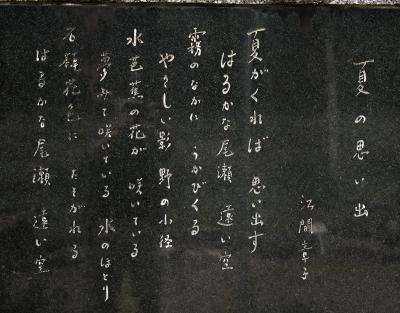 夏の思い出
江間章子
夏がくれば 思い出す
はるかな尾瀬 遠い空
霧のなかに うかびくる
やさしい影 野の小径
水芭蕉の花が 咲いている
夢みて咲いている 水のほとり
石楠花色に たそがれる
はるかな尾瀬 遠い空